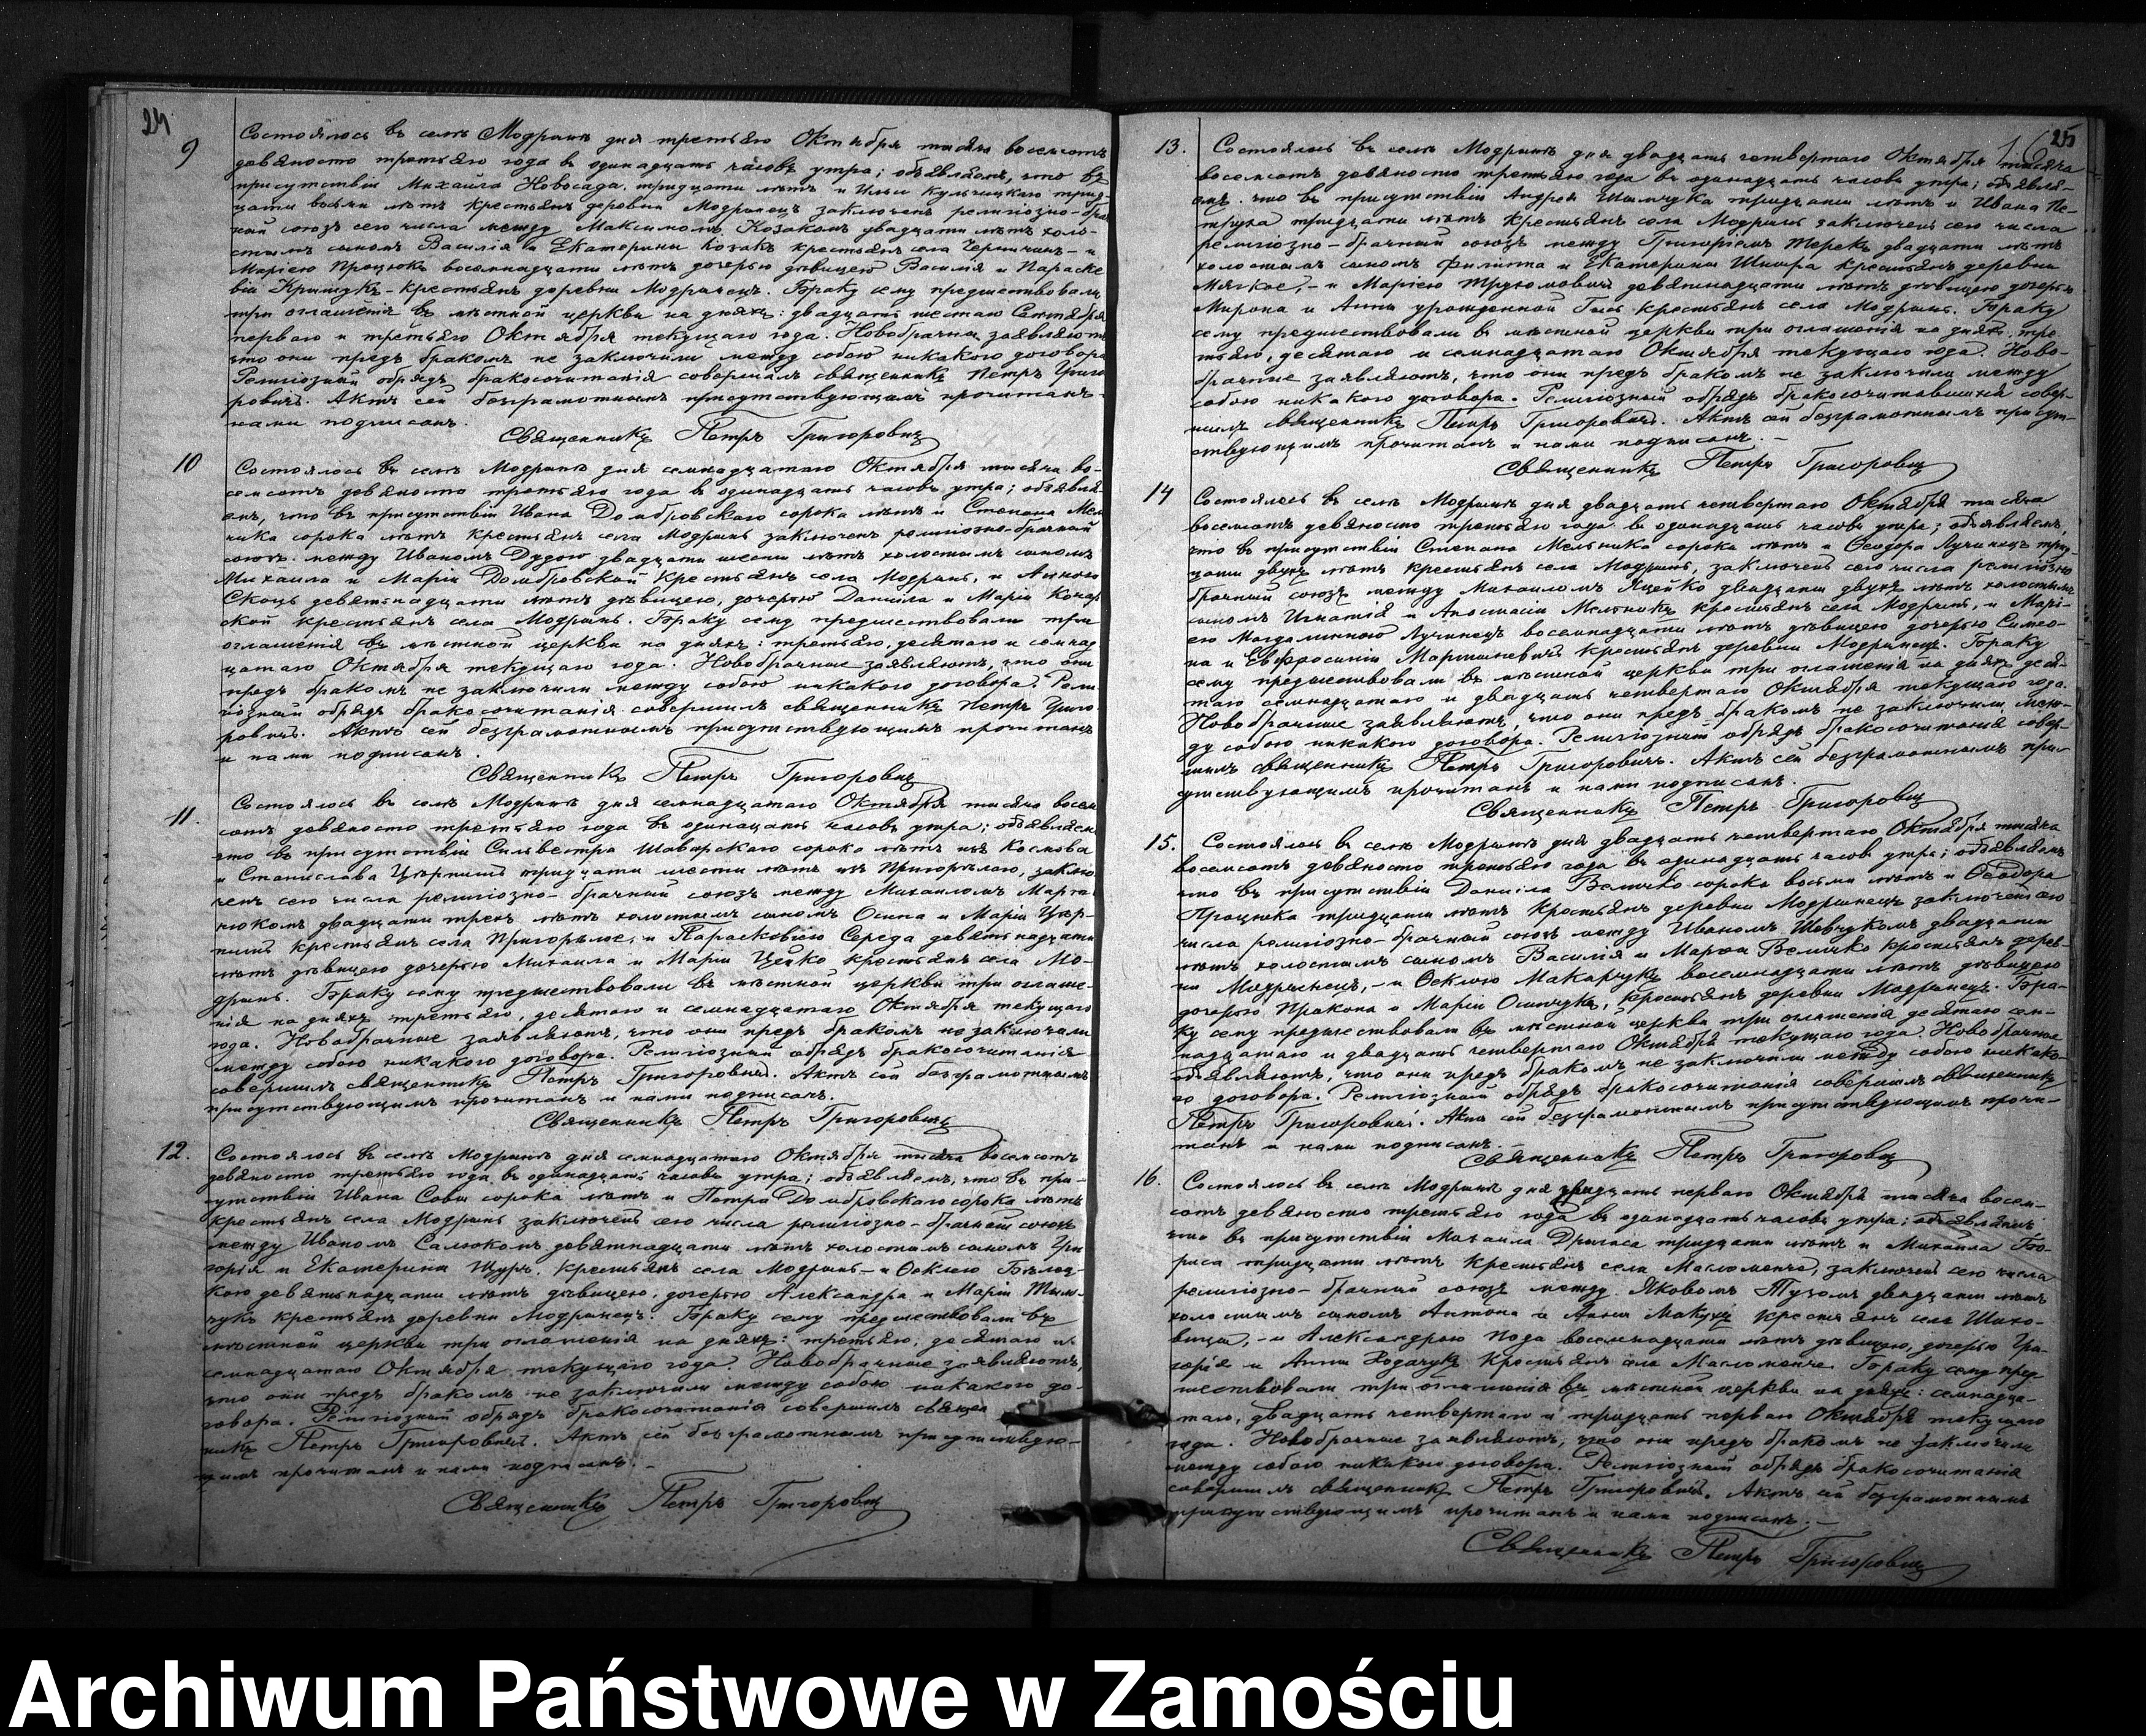 24
9
Состоялось въ селѣ Модрынѣ дня третьяго Октября тысяча восемсотъ
девяносто третьяго года въ одинадцать часовъ утра; объявляемъ, что въ
присутствіи Михаила Новосада, тридцати лѣтъ и Ильи Кульчицкаго трид-
цати восьми лѣтъ крестьянъ деревни Модрынецъ заключенъ религіозно-брач
ный союзъ сего числа между Максимомъ Козакомъ двадцати лѣтъ холо-
стымъ сыномъ Василія и Екатерины Козакъ крестьянъ села Черничинъ - и
Маріею Процюкъ восемнадцати лѣтъ дочерью дѣвицею Василія и Параске
віи - крестьянъ деревни Модрынецъ. Браку сему предшествовали
три оглашенія въ мѣстной церкви на дняхъ: двадцать шестаго Сентября
перваго и третьяго Октября текущаго года. Новобрачны заявляютъ
что они предъ бракомъ не заключили между собою никакого договора
Религіозный обрядъ бракосочитанія совершилъ священникъ Петръ Григо
ровичъ. Актъ сей безграмотнымъ присутствующимъ прочитанъ
нами подписанъ.
Священникъ Петръ Григоровичъ
10
Состоялось въ селѣ Модрынѣ дня семнадцатаго Октября тысяча во-
семсотъ девяносто третьяго года въ одинадцать часовъ утра; объявля-
емъ, что въ присутствіи Ивана Домбровскаго сорока лѣтъ и Степана Мель
ника сорока лѣтъ крестьянъ села Модрынь заключенъ религіозно-брачный
союзъ между Иваномъ Дудою двадцати шести лѣтъ холостымъ сыномъ
Михаила и Маріи Домбровской крестьянъ села Модрынь, и Анною
Скоцъ девятнадцати лѣтъ дѣвицею, дочерью Даніила и Маріи
ской крестьянъ села Модрынь. Браку сему предшествовали три
оглашенія въ мѣстной церкви на дняхъ: третьяго, десятаго и семнад
цатаго Октября текущаго года. Новобрачные заявляютъ, что они
предъ бракомъ не заключили между собою никакого договора. Рели
гіозный обрядъ бракосочитанія совершилъ священникъ Петръ Григо
ровичъ. Актъ сей безграмотнымъ присутствующимъ прочитанъ
и нами подписанъ.
Священникъ Петръ Григоровичъ
11.
Состоялось въ селѣ Модрынѣ дня семнадцатаго Октября тысяча восем
сотъ девяносто третьяго года въ одинацать часовъ утра; объявляемъ
что въ присутствіи Сильвестра Шаварскаго сорока лѣтъ изъ Космова
и Станислава тридцати шести лѣтъ изъ Пригорѣлого, заклю
ченъ сего числа религіозно-брачный союзъ между Михаиломъ Марти
нюкомъ двадцати трехъ лѣтъ холостымъ сыномъ Осипа и Маріи
крестьянъ села Пригорѣлое, и Параскевіею Середа девятнадцати
лѣтъ дѣвицею дочерью Михаила и Маріи Цейко крестьянъ села Мо-
дрынь. Браку сему предшествовали въ мѣстной церкви три оглаше-
нія на дняхъ третьяго, десятаго и семнадцатаго Октября текущаго
года. Новобрачные заявляютъ, что они предъ бракомъ не заключили
между собою никакого договора. Религіозный обрядъ бракосочитанія
совершилъ священникъ Петръ Григоровичъ. Актъ сей безграмотнымъ
присутствующимъ прочитанъ и нами подписанъ.
Священникъ Петръ Григоровичъ
12.
Состоялось въ селѣ Модрынѣ дня семнадцатаго Октября тысяча восемсотъ
девяносто третьяго года въ одинадцать часовъ утра; объявляемъ, что въ при-
сутствіи Ивана Совы сорока лѣтъ и Петра Домбровскаго сорока лѣтъ
крестьянъ села Модрынь заключенъ сего числа религіозно-брачный союзъ
между Иваномъ Салюкомъ девятнадцати лѣтъ холостымъ сыномъ Гри
горія и Екатерины Щуръ крестьянъ села Модрынь - и Феклею
кою девятнадцати лѣтъ дѣвицею, дочерью Александра и Маріи Тым-
чукъ крестьянъ деревни Модрынецъ. Браку сему предшествовали въ
мѣстной церкви три оглашенія на дняхъ: третьяго, десятаго и
семнадцатаго Октября текущаго года. Новобрачные заявляютъ,
что они предъ бракомъ не заключили между собою никакого до-
говора. Религіозный обрядъ бракосочитанія совершилъ священ
никъ Петръ Григоровичъ. Актъ сей безграмотнымъ присутствую-
щимъ прочитанъ и нами подписанъ. -
Священникъ Петръ Григоровичъ
25
13.
Состоялось въ селѣ Модрынѣ дня двадцать четвертаго Октября тысяча
восемсотъ девяносто третьяго года въ одинадцать часовъ утра; объявля-
емъ что въ присутствіи Андрея Шымчука тридцати лѣтъ и Ивана Пе-
трука тридцати лѣтъ крестьянъ села Модрынь заключенъ сего числа
религіозно-брачный союзъ между Григоріемъ Терекъ двадцати лѣтъ
холостымъ сыномъ Филиппа и Екатерины крестьянъ деревни
Мягкое, - и Маріею девятнадцати лѣтъ дѣвицею дочерью
Мирона и Анны урожденной крестьянъ села Модрынь. Браку
сему предшествовали въ мѣстной церкви три оглашенія на дняхъ: тре
тьяго, десятаго и семнадцатаго Октября текущаго года. Ново-
брачные заявляютъ, что они предъ бракомъ не заключили между
собою никакого договора. Религіозный обрядъ совер-
шилъ священникъ Петръ Григоровичъ. Актъ сей безграмотнымъ присут-
ствующимъ прочитанъ и нами подписанъ. -
Священникъ Петръ Григоровичъ
14
Состоялось въ селѣ Модрынѣ дня двадцать четвертаго Октября тысяча
восемсотъ девяносто третьяго года въ одинадцать часовъ утра; объявляемъ,
что въ присутствіи Степана Мельника сорока лѣтъ и Феодора Лучинецъ трид-
цати двухъ лѣтъ крестьянъ села Модрынь, заключенъ сего числа религіозно
брачный союзъ между Михаиломъ Яцейко двадцати двухъ лѣтъ холостымъ
сыномъ Игнатія и Анастасіи Мельникъ крестьянъ села Модрынь, и Марі-
ею Магдалиною Лучинецъ восемнадцати лѣтъ дѣвицею дочерью Симео-
на и Евфросиніи Мартыневичъ крестьянъ деревни Модрынецъ. Браку
сему предшествовали въ мѣстной церкви три оглашенія на дняхъ деся-
таго семнадцатаго и двадцать четвертаго Октября текущаго года.
Новобрачные заявляютъ, что они предъ бракомъ не заключили меж-
ду собою никакого договора. Религіозный обрядъ бракосочитанія совер-
шилъ священникъ Петръ Григоровичъ. Актъ сей безграмотнымъ прис-
утствующимъ прочитанъ и нами подписанъ.
Священникъ Петръ Григоровичъ
15.
Состоялось въ селѣ Модрынѣ дня двадцать четвертаго Октября тысяча
восемсотъ девяносто третьяго года въ одинадцать часовъ утра; объявляемъ
что въ присутствіи Даніила Величко сорока восьми лѣтъ и Феодора
Процюка тридцати лѣтъ крестьянъ деревни Модрынецъ заключенъ сего
числа религіозно-брачный союзъ между Иваномъ Шевчукомъ двадцати
лѣтъ холостымъ сыномъ Василія и Марѳы Величко крестьянъ дерев-
ни Модрынецъ, - и Феклою Макарчукъ восемнадцати лѣтъ дѣвицею
дочерью Прокопа и Маріи крестьянъ деревни Модрынецъ. Бра-
ку сему предшествовали въ мѣстной церкви три оглашенія десятаго сем-
надцатаго и двадцать четвертаго Октября текущаго года. Новобрачные
объявляютъ, что они предъ бракомъ не заключили между собою никако-
го договора. Религіозный обрядъ бракосочитанія совершилъ священникъ
Петръ Григоровичъ. Актъ сей безграмотнымъ присутствующимъ прочи-
танъ и нами подписанъ. -
Священникъ Петръ Григоровичъ
16.
Состоялось въ селѣ Модрынѣ дня тридцать перваго Октября тысяча восем-
сотъ девяносто третьяго года въ одинадцать часовъ утра; объявляемъ
что въ присутствіи Михаила тридцати лѣтъ и Михаила Бо-
риса тридцати лѣтъ крестьянъ села Масломенче, заключенъ сего числа
религіозно-брачный союзъ между Яковомъ Тузомъ двадцати лѣтъ
холостымъ сыномъ Антона и Анны крестьянъ села Шихо-
вицы, - и Александрою Пода восемнадцати лѣтъ дѣвицею, дочерью Гри-
горія и Анны крестьянъ села Масломенче. Браку сему пред-
шествовали три оглашенія въ мѣстной церкви на дняхъ: семнадца-
таго, двадцать четвертаго и тридцать перваго Октября текущаго
года. Новобрачные заявляютъ, что они предъ бракомъ не заключили
между собою никакого договора. Религіозный обрядъ бракосочитанія
совершилъ священникъ Петръ Григоровичъ. Актъ сей безграмотнымъ
присутствующимъ прочитанъ и нами подписанъ. -
Священникъ Петръ Григоровичъ
Archiwum Państwowe w Zamościu